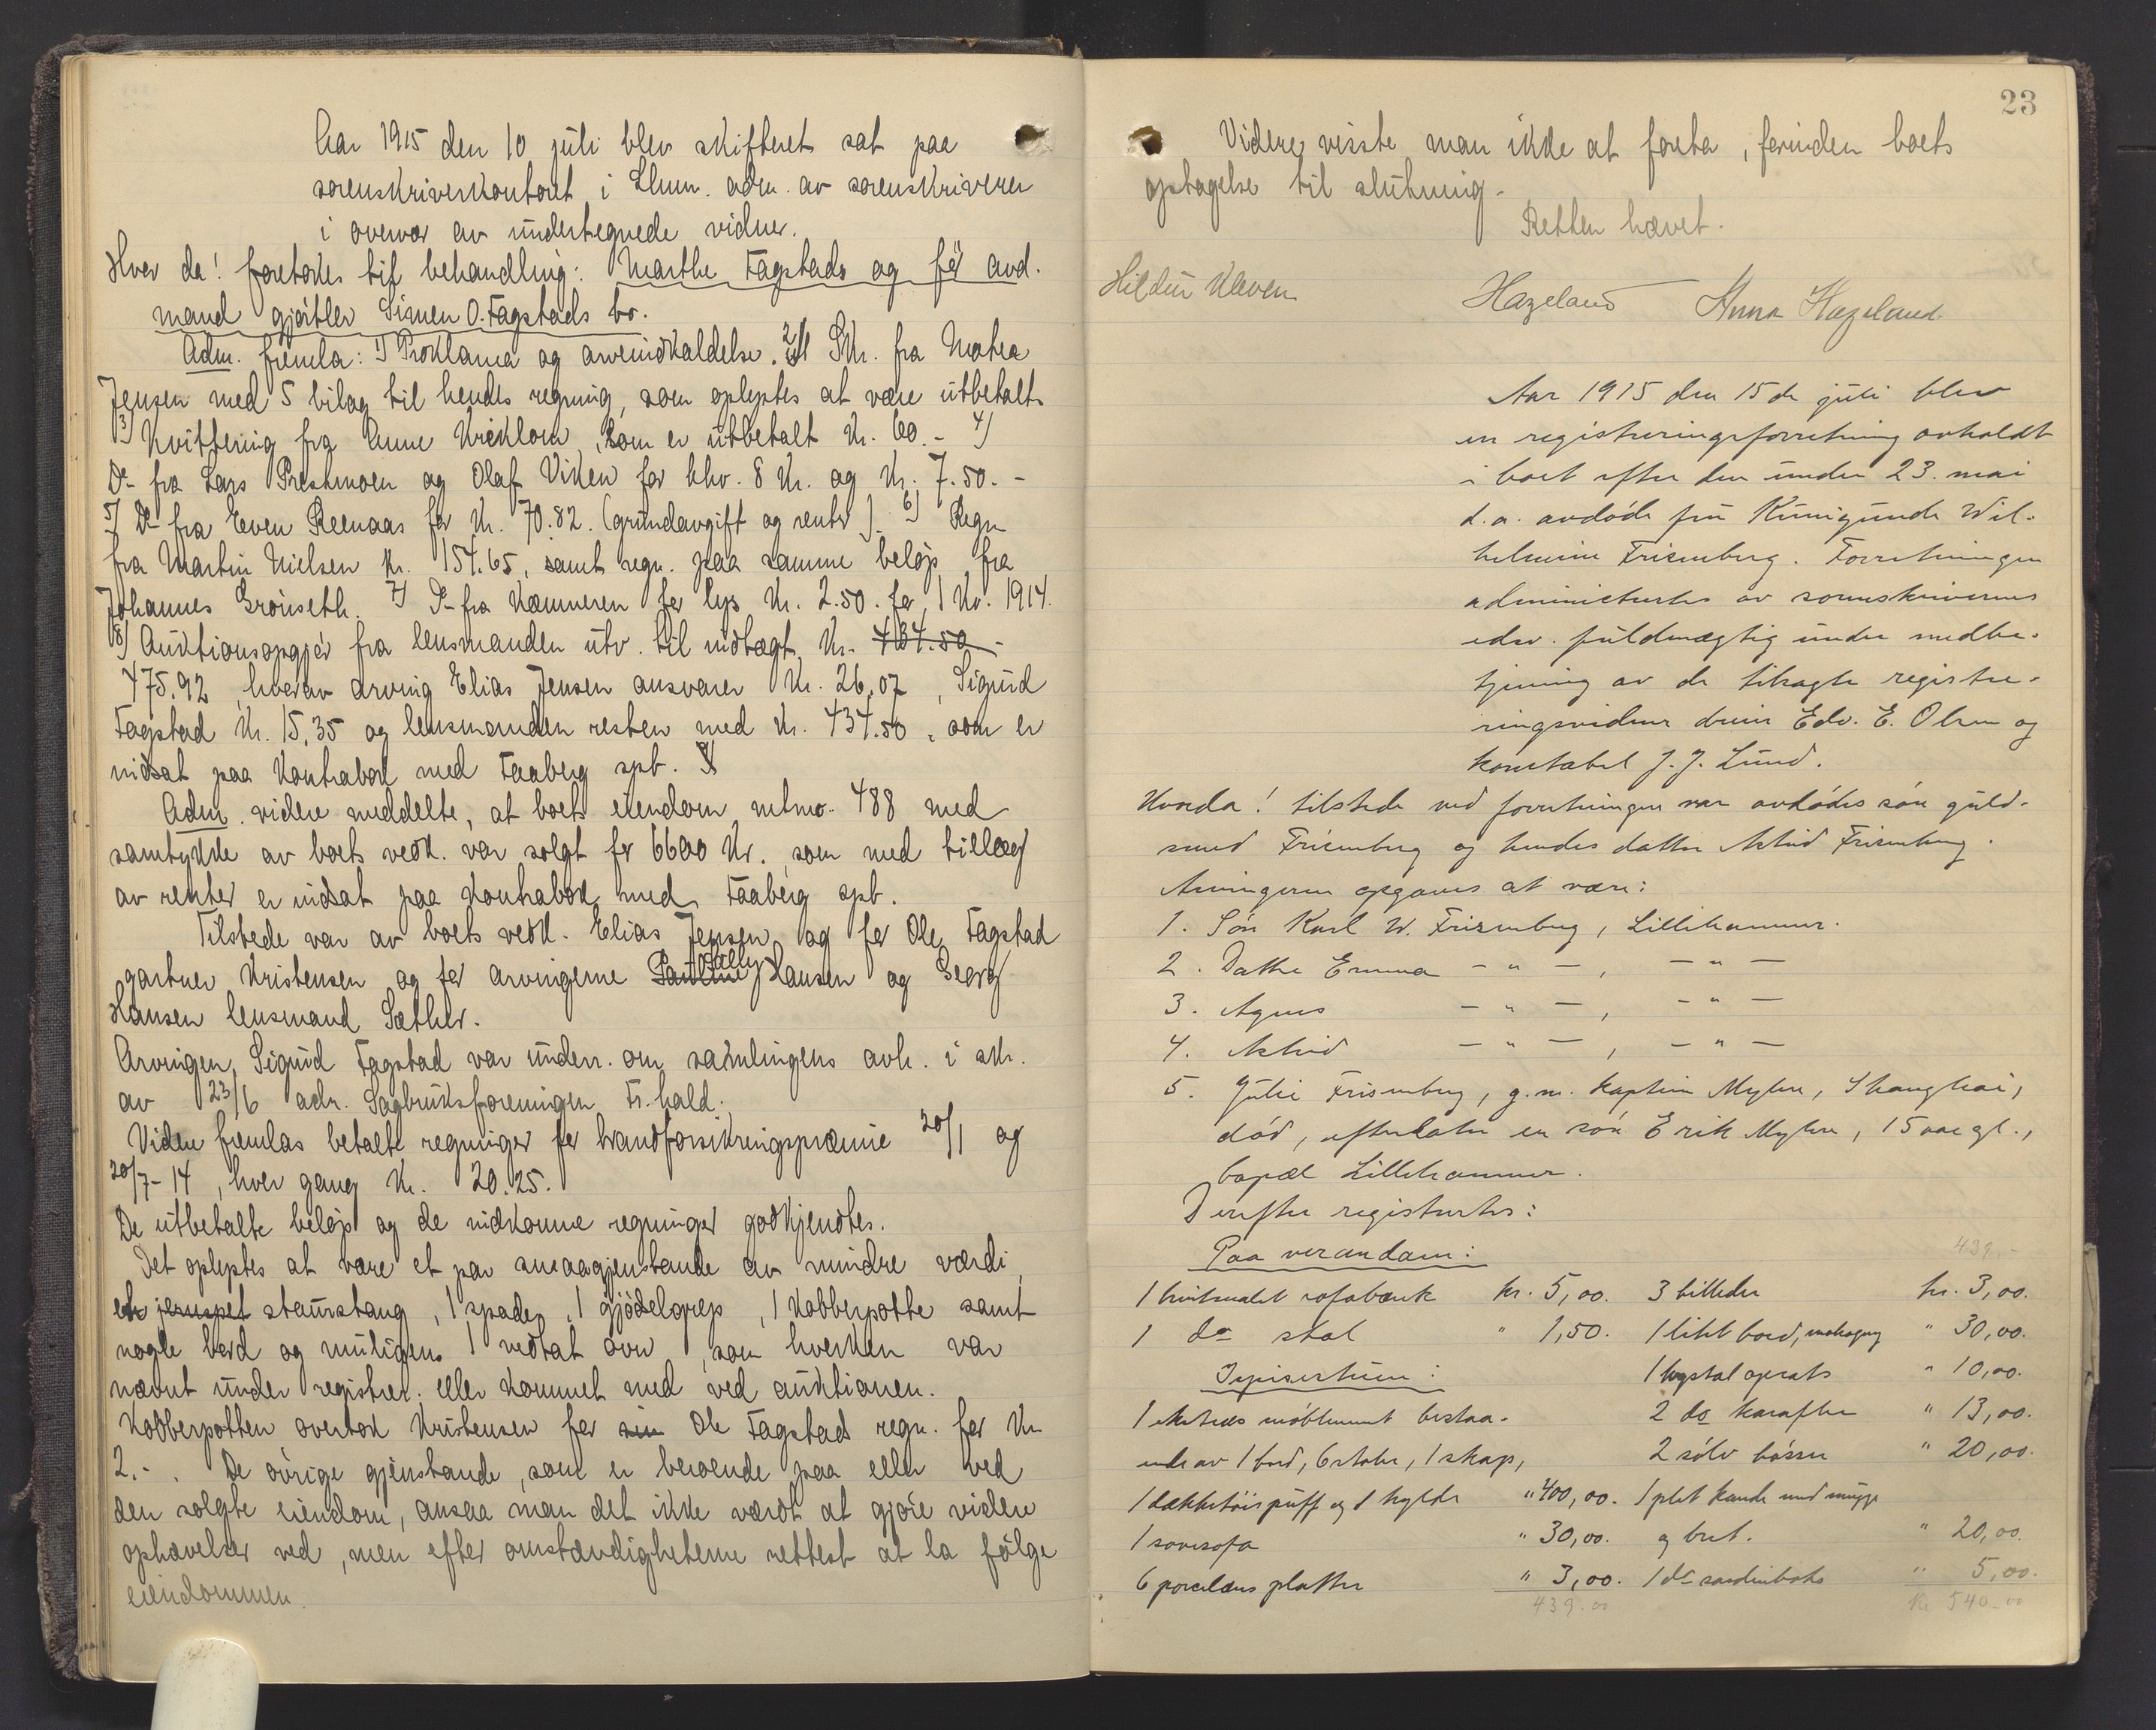 Aar 1915 den 10 juli blev skifteret sat paa
sorenskriverkontoret i Lhmr. adm. av sorenskriveren
i overvær av undertegnede vidner.
Hvor da! foretokes til behandling: Marthe Fagstads og før avd.
mand gjørtler Simen O. Fagstads bo.
Adm. fremla: 1) Proklama og arveindkaldelse. 2) Skr. fra Mathea
Jensen med 5 bilag til hendes regning, som oplystes at være utbetalt.
3) Kvittering fra Anne, som er utbetalt Kr. 60.- 4)
Do fra Lars Prestmoen og Olaf Viken for hhv. 8 Kr. og Kr. 7.50.-
5) Do fra Even Reenaas for Kr. 70.82. (grundavgift og renter). 6) Regn
fra Martin Nielsen Kr. 154.65, samt regn. paa samme beløp fra
Johannes Grønseth. 7) Do fra Kæmneren for lys Kr. 2.50. for 1 Kv. 1914.
8) Auktionsopgjør fra lensmanden utv. til indtægt Kr. 434.50
475.92, hvorav arving Elias Jensen ansvarer Kr. 26.07, Sigurd
Fagstad Kr. 15,35 og lensmanden resten med Kr. 434.50, som er
indsat paa Kontrabok med Faaberg spb.
Adm. videre meddelte, at boets eiendom mtrno. 488 med
samtykke av boets vedk. var solgt for 6600 Kr., som med tillæg
av renter er indsat paa Kontrabok med Faaberg spb.
Tilstede var av boets vedk. Elias Jensen og for Ole Fagstad
gartner Kristensen og for arvingerne Pauline Hansen og Georg
Hansen lensmand Sæther.
Arvingen Sigurd Fagstad var underr. om samlingens avh. i skr.
av 23/6 adr. Sagbruksforeningen Fr.hald.
Videre fremlas betalte regninger for brandforsikringspræmie 20/1 og
20/7-14, hver gang Kr. 20.25.
De utbetalte beløp og de indkomne regninger godkjendtes.
Det oplystes at være et par smaagjenstande av mindre værdi,
et jernspet staurstang, 1 spade, 1 gjødelgrep, 1 Kobberpotte samt
nogle bord og muligens 1 vedtat ovn, som hverken var
nævnt under registrer. eller kommet med ved auktionen.
Kobberpotten overtok Kristensen for sin Ole Fagstads regn. for Kr
2.-. De øvrige gjenstande, som er beroende paa eller ved
den solgte eiendom, ansaa man det ikke værdt at gjøre videre
ophævelser ved, men efter omstændigheterne rettest at la følge
eiendommen.
23
Videre visste man ikke at foreta, forinden boets
optagelse til slutning.
Retten hævet.
Hildur Kleven Hazeland Anna Hazeland.
Aar 1915 den 15de juli blev
en registreringsforretning avholdt
i boet efter den under 23. mai
d.a. avdøde fru Kunigunde Wil-
helmine Frisenberg. Forretningen
administrertes av sorenskriverens
edsv. fuldmægtig under medbe-
tjening av de tilsagte registre-
ringsvidner Edv. E. Olsen og
konstabel J. J. Lund.
Hvorda! tilstede ved forretningen var avdødes søn guld-
smed Frisenberg og hendes datter Astrid Frisenberg.
Arvingerne opgaves at være:
1. Søn Karl W. Frisenberg, Lillehammer.
2. Datter Emma - " -, - " -
3. Agnes - " -, - " -
4. Astrid - " -, - " -
5. Julie Frisenberg, g.m. kaptein Myhre, Shanghai,
død, efterlater en søn Erik Myhre, 15 aar gl.,
bopæl Lillehammer.
Derefter registrertes:
Paa verandaen: 439.-
1 hvitmalet sofabænk kr. 5,00. 3 billeder kr. 3,00.
1 do stol " 1,50. 1 litet bord, mahogny " 30,00.
I spisestuen: 1 krystal opsats " 10,00.
1 ekstræs møblement bestaa- 2 do karafler " 13,00.
ende av 1 bord, 6 stoler, 1 skap, 2 sølv bøsser " 20,00.
1 dækketøispuff og 1 hylde " 400,00. 1 plet kande med mugge
1 sovesofa " 30,00. og bret. " 20,00.
6 porcelæns platter " 3,00. 1 do sardinboks " 5,00.
439.00 Kr 540-00